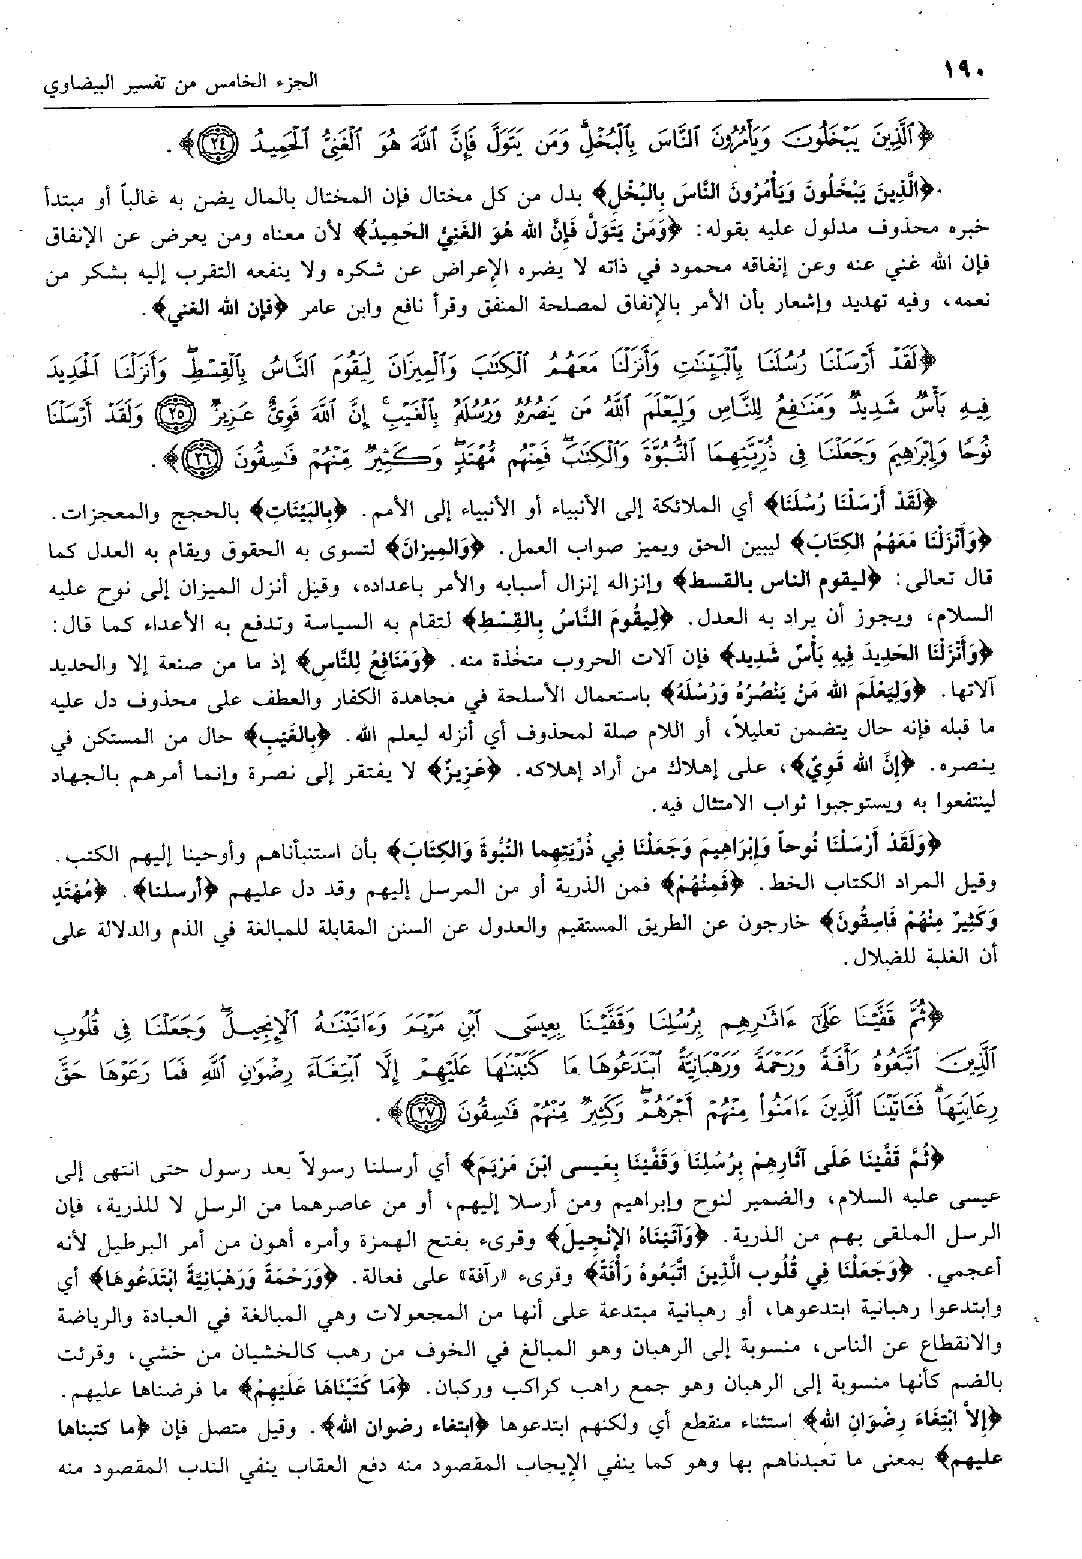 ١٩٠
الجزء الخامس من تفسير البيضاوي
﴿ٱلَّذِينَ يَبۡخَلُونَ وَيَأۡمُرُونَ ٱلنَّاسَ بِٱلۡبُخۡلِۗ وَمَن يَتَوَلَّ فَإِنَّ ٱللَّهَ هُوَ ٱلۡغَنِيُّ ٱلۡحَمِيدُ ٢٤﴾.
﴿الَّذِينَ يَبْخَلُونَ وَيَأْمُرُونَ النَّاسَ بِالبُخْلِ﴾ بدل من كل مختال فإن المختال بالمال يضن به غالباً أو مبتدأ
خبره محذوف مدلول عليه بقوله: ﴿وَمَنْ يَتَوَلَّ فَإِنَّ الله هُوَ الغَنِيُّ الحَمِيدُ﴾ لأن معناه ومن يعرض عن الإنفاق
فإن الله غني عنه وعن إنفاقه محمود في ذاته لا يضره الإعراض عن شكره ولا ينفعه التقرب إليه بشكر من
نعمه، وفيه تهديد وإشعار بأن الأمر بالإنفاق لمصلحة المنفق وقرأ نافع وابن عامر ﴿فإن الله الغني﴾.
﴿لَقَدۡ أَرۡسَلۡنَا رُسُلَنَا بِٱلۡبَيِّنَٰتِ وَأَنزَلۡنَا مَعَهُمُ ٱلۡكِتَٰبَ وَٱلۡمِيزَانَ لِيَقُومَ ٱلنَّاسُ بِٱلۡقِسۡطِۖ وَأَنزَلۡنَا ٱلۡحَدِيدَ
فِيهِ بَأۡسٞ شَدِيدٞ وَمَنَٰفِعُ لِلنَّاسِ وَلِيَعۡلَمَ ٱللَّهُ مَن يَنصُرُهُۥ وَرُسُلَهُۥ بِٱلۡغَيۡبِۚ إِنَّ ٱللَّهَ قَوِيٌّ عَزِيزٞ ٢٥ وَلَقَدۡ أَرۡسَلۡنَا
نُوحٗا وَإِبۡرَٰهِيمَ وَجَعَلۡنَا فِي ذُرِّيَّتِهِمَا ٱلنُّبُوَّةَ وَٱلۡكِتَٰبَۖ فَمِنۡهُم مُّهۡتَدٖۖ وَكَثِيرٞ مِّنۡهُمۡ فَٰسِقُونَ ٢٦﴾.
﴿لَقَدْ أَرْسَلْنَا رُسُلَنَا﴾ أي الملائكة إلى الأنبياء أو الأنبياء إلى الأمم. ﴿بِالبَيِّنَاتِ﴾ بالحجج والمعجزات.
﴿وَأَنْزَلْنَا مَعَهُمُ الكِتَابَ﴾ ليبين الحق ويميز صواب العمل. ﴿وَالمِيزَانَ﴾ لتسوى به الحقوق ويقام به العدل كما
قال تعالى: ﴿ليقوم الناس بالقسط﴾ وإنزاله إنزال أسبابه والأمر باعداده، وقيل أنزل الميزان إلى نوح عليه
السلام، ويجوز أن يراد به العدل. ﴿لِيَقُومَ النَّاسُ بِالقِسْطِ﴾ لتقام به السياسة وتدفع به الأعداء كما قال:
﴿وَأَنْزَلْنَا الحَدِيدَ فِيهِ بَأْسٌ شَدِيد﴾ فإن آلات الحروب متخذة منه. ﴿وَمَنَافِعُ لِلنَّاسِ﴾ إذ ما من صنعة إلا والحديد
آلاتها. ﴿وَلِيَعْلَمَ الله مَنْ يَنْصُرُهُ وَرُسُلَهُ﴾ باستعمال الأسلحة في مجاهدة الكفار والعطف على محذوف دل عليه
ما قبله فإنه حال يتضمن تعليلاً، أو اللام صلة لمحذوف أي أنزله ليعلم الله. ﴿بِالغَيْبِ﴾ حال من المستكن في
ينصره. ﴿إِنَّ الله قَوِيٌ﴾، على إهلاك من أراد إهلاكه. ﴿عَزِيزٌ﴾ لا يفتقر إلى نصرة وإنما أمرهم بالجهاد
لينتفعوا به ويستوجبوا ثواب الامتثال فيه.
﴿وَلَقَدْ أَرْسَلْنَا نُوحاً وَإِبْرَاهِيمَ وَجَعَلْنَا فِي ذُرِّيَتِهِما النُّبُوةَ وَالكِتَابَ﴾ بأن استنبأناهم وأوحينا إليهم الكتب.
وقيل المراد الكتاب الخط. ﴿فَمِنْهُمْ﴾ فمن الذرية أو من المرسل إليهم وقد دل عليهم ﴿أرسلنا﴾. ﴿مُهْتَدٍ
وَكَثِيرٌ مِنْهُمْ فَاسِقُونَ﴾ خارجون عن الطريق المستقيم والعدول عن السنن المقابلة للمبالغة في الذم والدلالة على
أن الغلبة للضلال.
﴿ثُمَّ قَفَّيۡنَا عَلَىٰٓ ءَاثَٰرِهِم بِرُسُلِنَا وَقَفَّيۡنَا بِعِيسَى ٱبۡنِ مَرۡيَمَ وَءَاتَيۡنَٰهُ ٱلۡإِنجِيلَۖ وَجَعَلۡنَا فِي قُلُوبِ
ٱلَّذِينَ ٱتَّبَعُوهُ رَأۡفَةٗ وَرَحۡمَةٗ وَرَهۡبَانِيَّةً ٱبۡتَدَعُوهَا مَا كَتَبۡنَٰهَا عَلَيۡهِمۡ إِلَّا ٱبۡتِغَآءَ رِضۡوَٰنِ ٱللَّهِ فَمَا رَعَوۡهَا حَقَّ
رِعَايَتِهَاۖ فَـَٔاتَيۡنَا ٱلَّذِينَ ءَامَنُواْ مِنۡهُمۡ أَجۡرَهُمۡۖ وَكَثِيرٞ مِّنۡهُمۡ فَٰسِقُونَ ٢٧﴾.
﴿ثُمَّ قَفَّيْنَا عَلَى آثَارِهِمْ بِرُسُلِنَا وَقَفَّيْنَا بِعَيسى ابْنَ مَرْيَمَ﴾ أي أرسلنا رسولاً بعد رسول حتى انتهى إلى
عيسى عليه السلام، والضمير لنوح وإبراهيم ومن أرسلا إليهم، أو من عاصرهما من الرسل لا للذرية، فإن
الرسل الملقى بهم من الذرية. ﴿وَآتَيْنَاهُ الإِنْجِيلَ﴾ وقرىء بفتح الهمزة وأمره أهون من أمر البرطيل لأنه
أعجمي. ﴿وَجَعَلْنَا فِي قُلُوبِ الَّذِينَ اتَّبَعُوهُ رَأْفَةً﴾ وقرىء «رآفة» على فعالة. ﴿وَرَحْمَةً وَرَهْبَانِيَّةً ابْتَدَعُوهَا﴾ أي
وابتدعوا رهبانية ابتدعوها، أو رهبانية مبتدعة على أنها من المجعولات وهي المبالغة في العبادة والرياضة
والانقطاع عن الناس، منسوبة إلى الرهبان وهو المبالغ في الخوف من رهب كالخشيان من خشي، وقرئت
بالضم كأنها منسوبة إلى الرهبان وهو جمع راهب كراكب وركبان. ﴿مَا كَتَبْنَاهَا عَلَيْهِمْ﴾ ما فرضناها عليهم.
﴿إِلاَّ ابْتِغَاءَ رِضْوَانِ الله﴾ استثناء منقطع أي ولكنهم ابتدعوها ﴿ابتغاء رضوان الله﴾. وقيل متصل فإن ﴿ما كتبناها
عليهم﴾ بمعنى ما تعبدناهم بها وهو كما ينفي الإيجاب المقصود منه دفع العقاب ينفي الندب المقصود منه